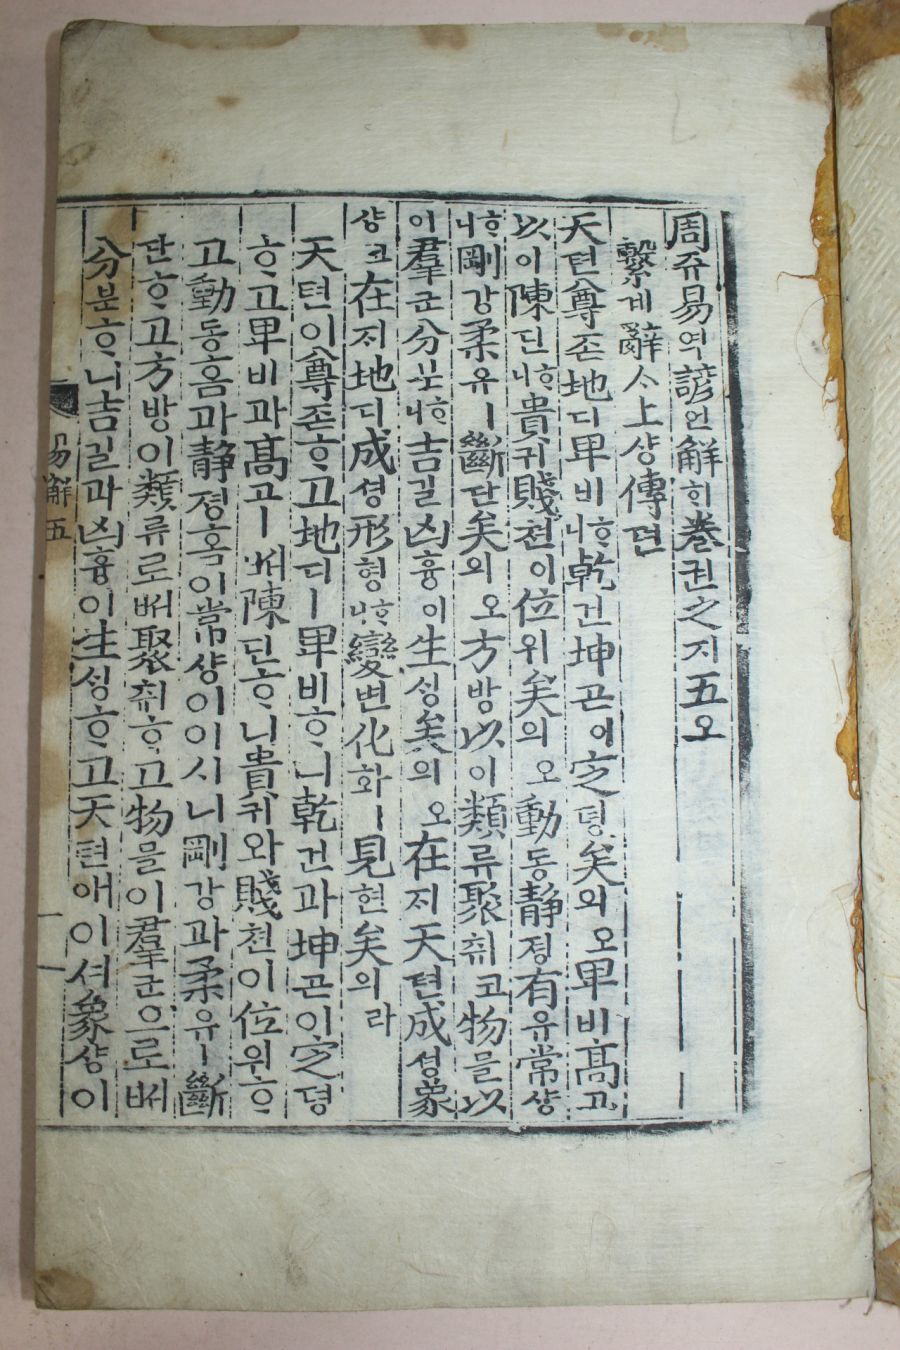 周쥬易역諺언解ᄒᆡ卷권之지五오
繫계辭ᄉᆞ上샹傳뎐
天텬尊존地디卑비ᄒᆞ니乾건坤곤이定뎡矣의오卑비高고
以이陳딘ᄒᆞ니貴귀賤쳔이位위矣의오動동靜졍有유常샹
ᄒᆞ니剛강柔유ㅣ斷단矣의오方방以이類류聚취코物믈以
이羣군分분ᄒᆞ니吉길凶흉이生ᄉᆡᆼ矣의오在ᄌᆡ天텬成셩象
샹코在ᄌᆡ地디成셩形형ᄒᆞ니變변化화ㅣ見현矣의라
天텬이尊존ᄒᆞ고地디ㅣ卑비ᄒᆞ니乾건과坤곤이定뎡
ᄒᆞ고卑비과高고ㅣᄡᅥ陳딘ᄒᆞ니貴귀와賤쳔이位위ᄒᆞ
고動동홈과靜졍홈이常샹이이시니剛강과柔유ㅣ斷
단ᄒᆞ고方방이類류로ᄡᅥ聚취ᄒᆞ고物믈이羣군으로ᄡᅥ
分분ᄒᆞ니吉길과凶흉이生ᄉᆡᆼᄒᆞ고天텬애이셔象샹이
易解五